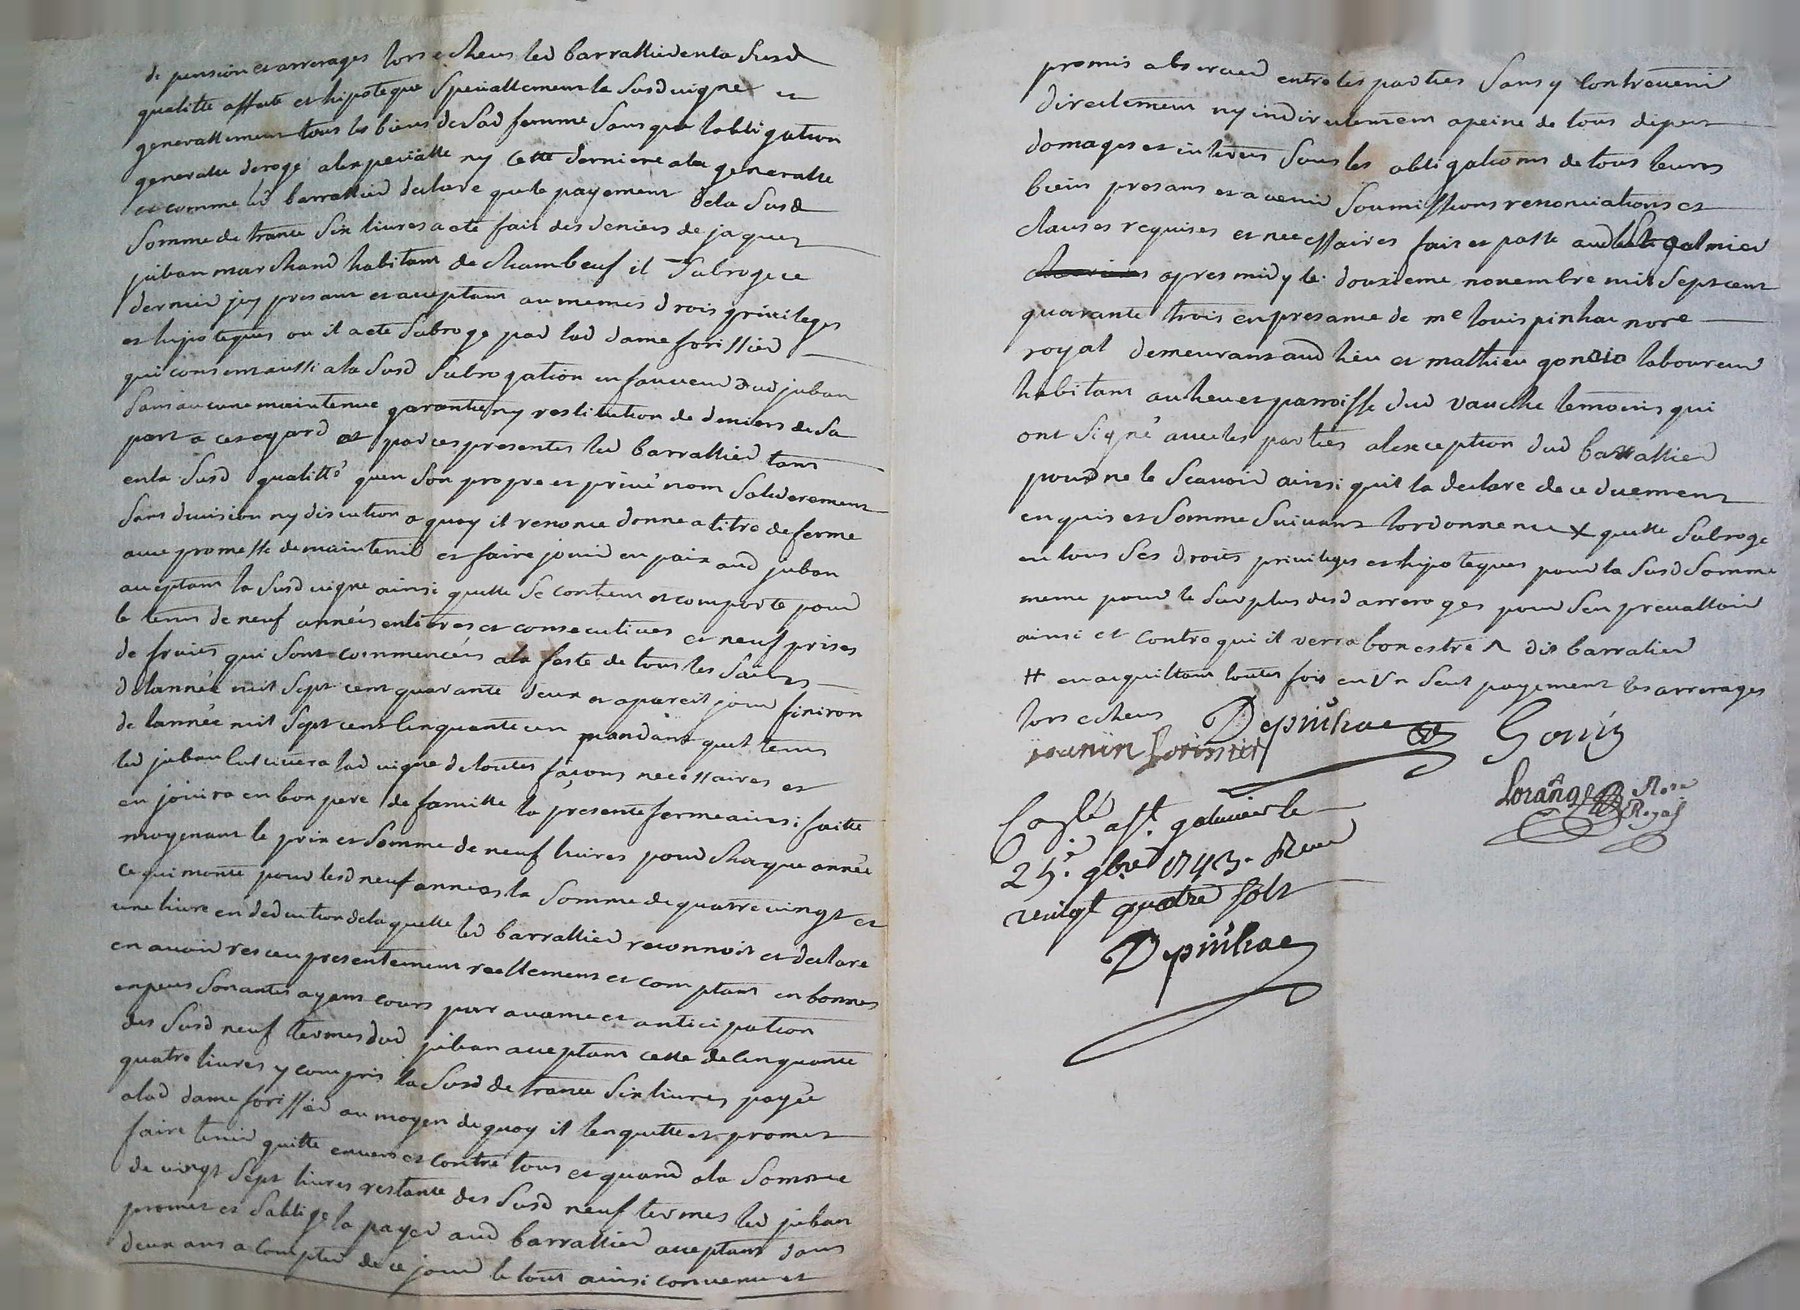 de pension et arrerages lors echeus led barrallier en la susd
qualitté affecte et hipoteque speciallement la susd vigne et
generallement tous les biens de sad femme sans que lobligation
generalle deroge a lespecialle ny cette derniere a la generalle
et comme led barrallier declare que le payement de la susd
somme de trante six livres a eté fait des deniers de jaques
juban marchand habitant de chambeuf il subroge ce
dernier icy presant et acceptant au memes drois privileges
et hipoteques ou il a eté subrogé par lad dame forissier
qui consent aussi a la susd subrogation en faveur dud juban
sans aucune maintenue garantie ny restitution de deniers de sa
part a cet egard et par ces presentes led barrallier tant
en la susd qualitté quen son propre et privé nom solidairement
sans division ny discution a quoy il renonce donne a titre de ferme
avec promesse de maintenir et faire jouir en paix aud juban
acceptant la susd vigne ainsi quelle se contient et comporte pour
le tems de neuf années entieres et consecutives et neuf prises
de fruits qui sont commencées a la feste de tous les saints
de lannée mil sept cent quarante deux et a pareil jour finiron
de lannée mil sept cent cinquante un pandant quel tems
led juban cultivera lad vigne de toutes façons necessaires et
en jouira en bon pere de famille la presente ferme ainsi faitte
moyenant le prix et somme de neuf livres pour chaque année
ce qui monte pour lesd neuf années la somme de quatre vingt et
une livre en deduction de laquelle led barrallier reconnoit et declare
en avoir receu presentement reellement et comptant en bonnes
especes sonantes ayant cours par avance et anticipation
des susd neuf termes dud juban acceptant celle de cinquante
quatre livres y compris la susd de trante six livres payée
a lad dame forissier au moyen de quoy il len quitte et promet
faire tenir quitte envers et contre tous et quand a la somme
de vingt sept livres restante des susd neuf termes led juban
promet et soblige la payer aud barrallier acceptant dans
deux ans a compter de ce jour le tout ainsi convenu et
promis observer entre les parties sans y contrevenir
directement ny indirectement a peine de tous depens
domages et interets sous les obligations de tous leurs
biens presans et avenir soumissions renonciations et
clauses requises et necessaires fait et passé aud st galmier
apres midy le douzieme novembre mil sept cent
quarante trois en presance de me louis pinhac nore
royal demeurant aud lieu et mathieu gonoin laboureur
habitant au lieu et parroisse dud vauche temoins qui
ont signé avec les parties a lexception dud barrallier
pour ne le scavoir ainsi quil la declaré de ce duement
enquis et sommé suivant lordonnance X quelle subroge
en tous ses droits privileges et hipoteques pour la susd somme
meme pour le surplus desd arrerages pour sen prevalloir
ainsi et contre qui il verra bon estre ^ dit barralier
# en acquittant toutes fois en un seul payement les arrerages
lors echeus Depinhac Gonin
jeanin forissier
Lorange Nore
Royal
Conlé a st galmier le
25e 9bre 1743. Reçu
vingt quatre sols
Depinhac